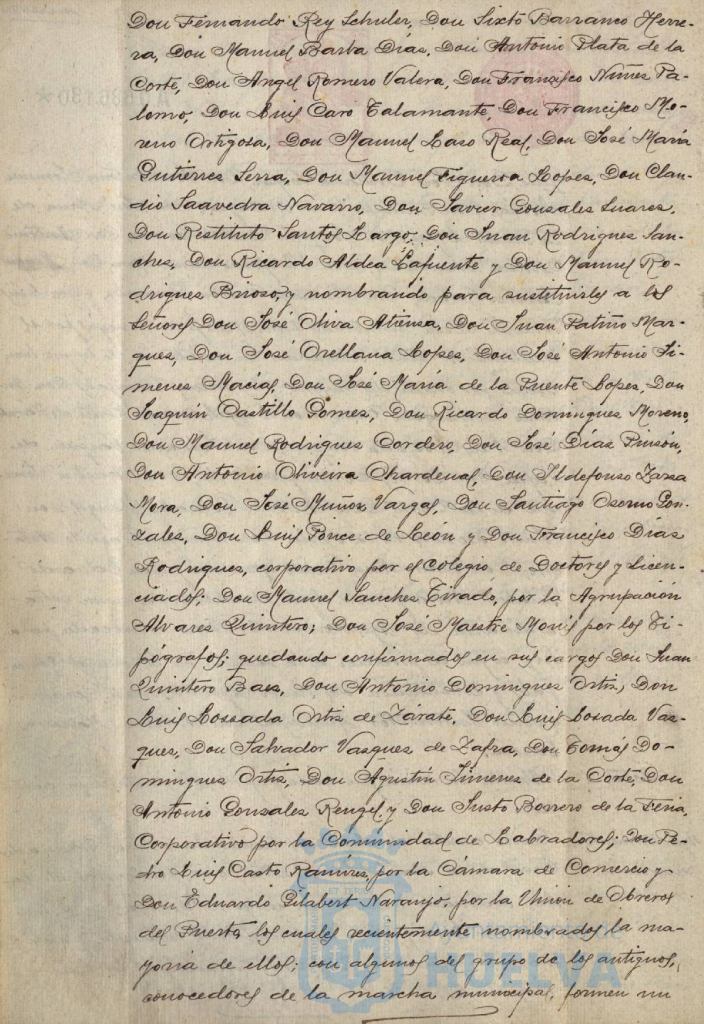 Don Fernando Rey Schuler, Don Sixto Barranco Herre-
ra, Don Manuel Barba Dias, Don Antonio Plata de la
Corte, Don Angel Romero Valera, Don Francisco Nuñes Pa-
lomo, Don Luis Caro Talamante, Don Francisco Mo-
reno Ortigosa, Don Manuel Laso Real, Don José María
Gutierres Serra, Don Manuel Figueroa Lopes, Don Clau-
dio Saavedra Navarro, Don Javier Gonsales Suares,
Don Restituto Santos Largo, Don Juan Rodrigues San-
ches, Don Ricardo Aldea Lafuente y Don Manuel Ro-
drigues Brioso, y nombrando para sustituirles a los
Señores Don José Oliva Atiensa, Don Juan Patiño Mar-
ques, Don José Orellana Lopes, Don José Antonio Ji-
menes Macias, Don José María de la Puente Lopes, Don
Joaquin Castillo Gomes, Don Ricardo Domingues Moreno,
Don Manuel Rodrigues Cordero, Don José Dias Pinsón,
Don Antonio Oliveira Chardenal, Don Ildefonso Zarza
Mora, Don José Muños Vargas, Don Santiago Osorno Gon-
zales, Don Luis Ponce de León y Don Francisco Dias
Rodrigues, corporativo por el Colegio de Doctores y Licen-
ciados; Don Manuel Sanches Tirado, por la Agrupación
Alvares Quintero; Don José Maestre por los Ti-
pógrafos; quedando confirmados en sus cargos Don Juan
Quintero Baes, Don Antonio Domingues Ortis, Don
Luis Lossada Ortis de Zárate, Don Luis Losada Vas-
ques, Don Salvador Vasques de Zafra, Don Tomás Do-
mingues Ortis, Don Agustín Jimenes de la Corte, Don
Antonio Gonsales Rengel, y Don Justo Borrero de la Feria,
Corporativo por la Comunidad de Labradores; Don Pe-
dro Luis Casto Ramires, por la Cámara de Comercio y
Don Eduardo Gilabert Naranjo, por la Union de Obreros
del Puerto, los cuales recientemente nombrados la ma-
yoria de ellos; con algunos del grupo de los antiguos,
conocedores de la marcha municipal, formen un
HUELVA